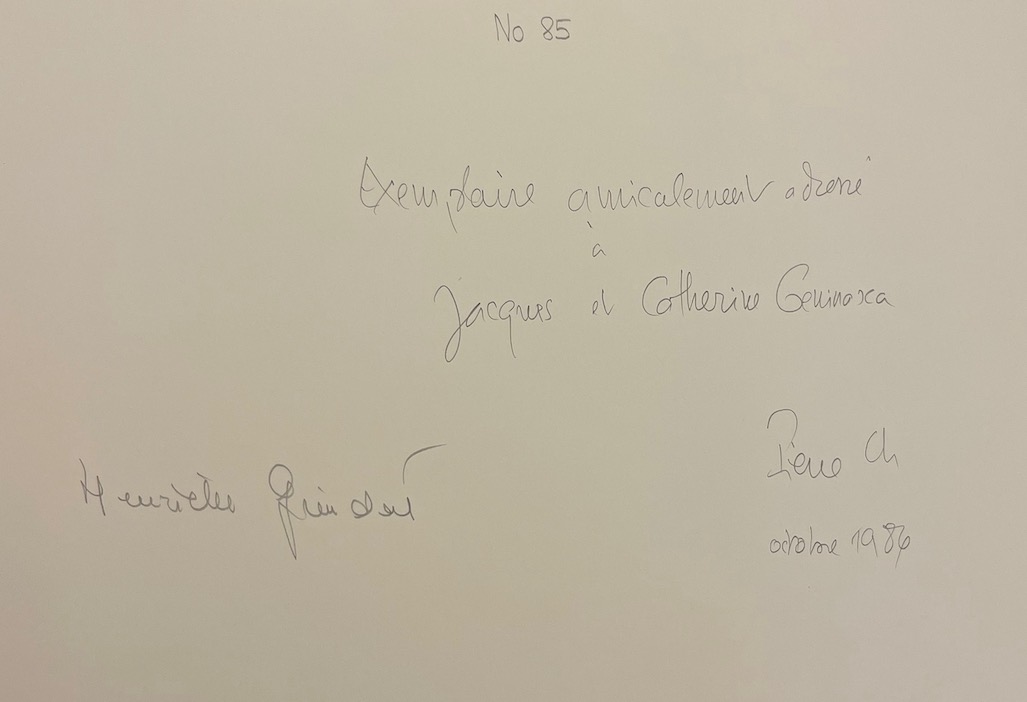 No 85
Exemplaire amicalement adressé
à
Jacques et Catherine Geninasca
Pierre Ch
Henriette Grindat
octobre 1986